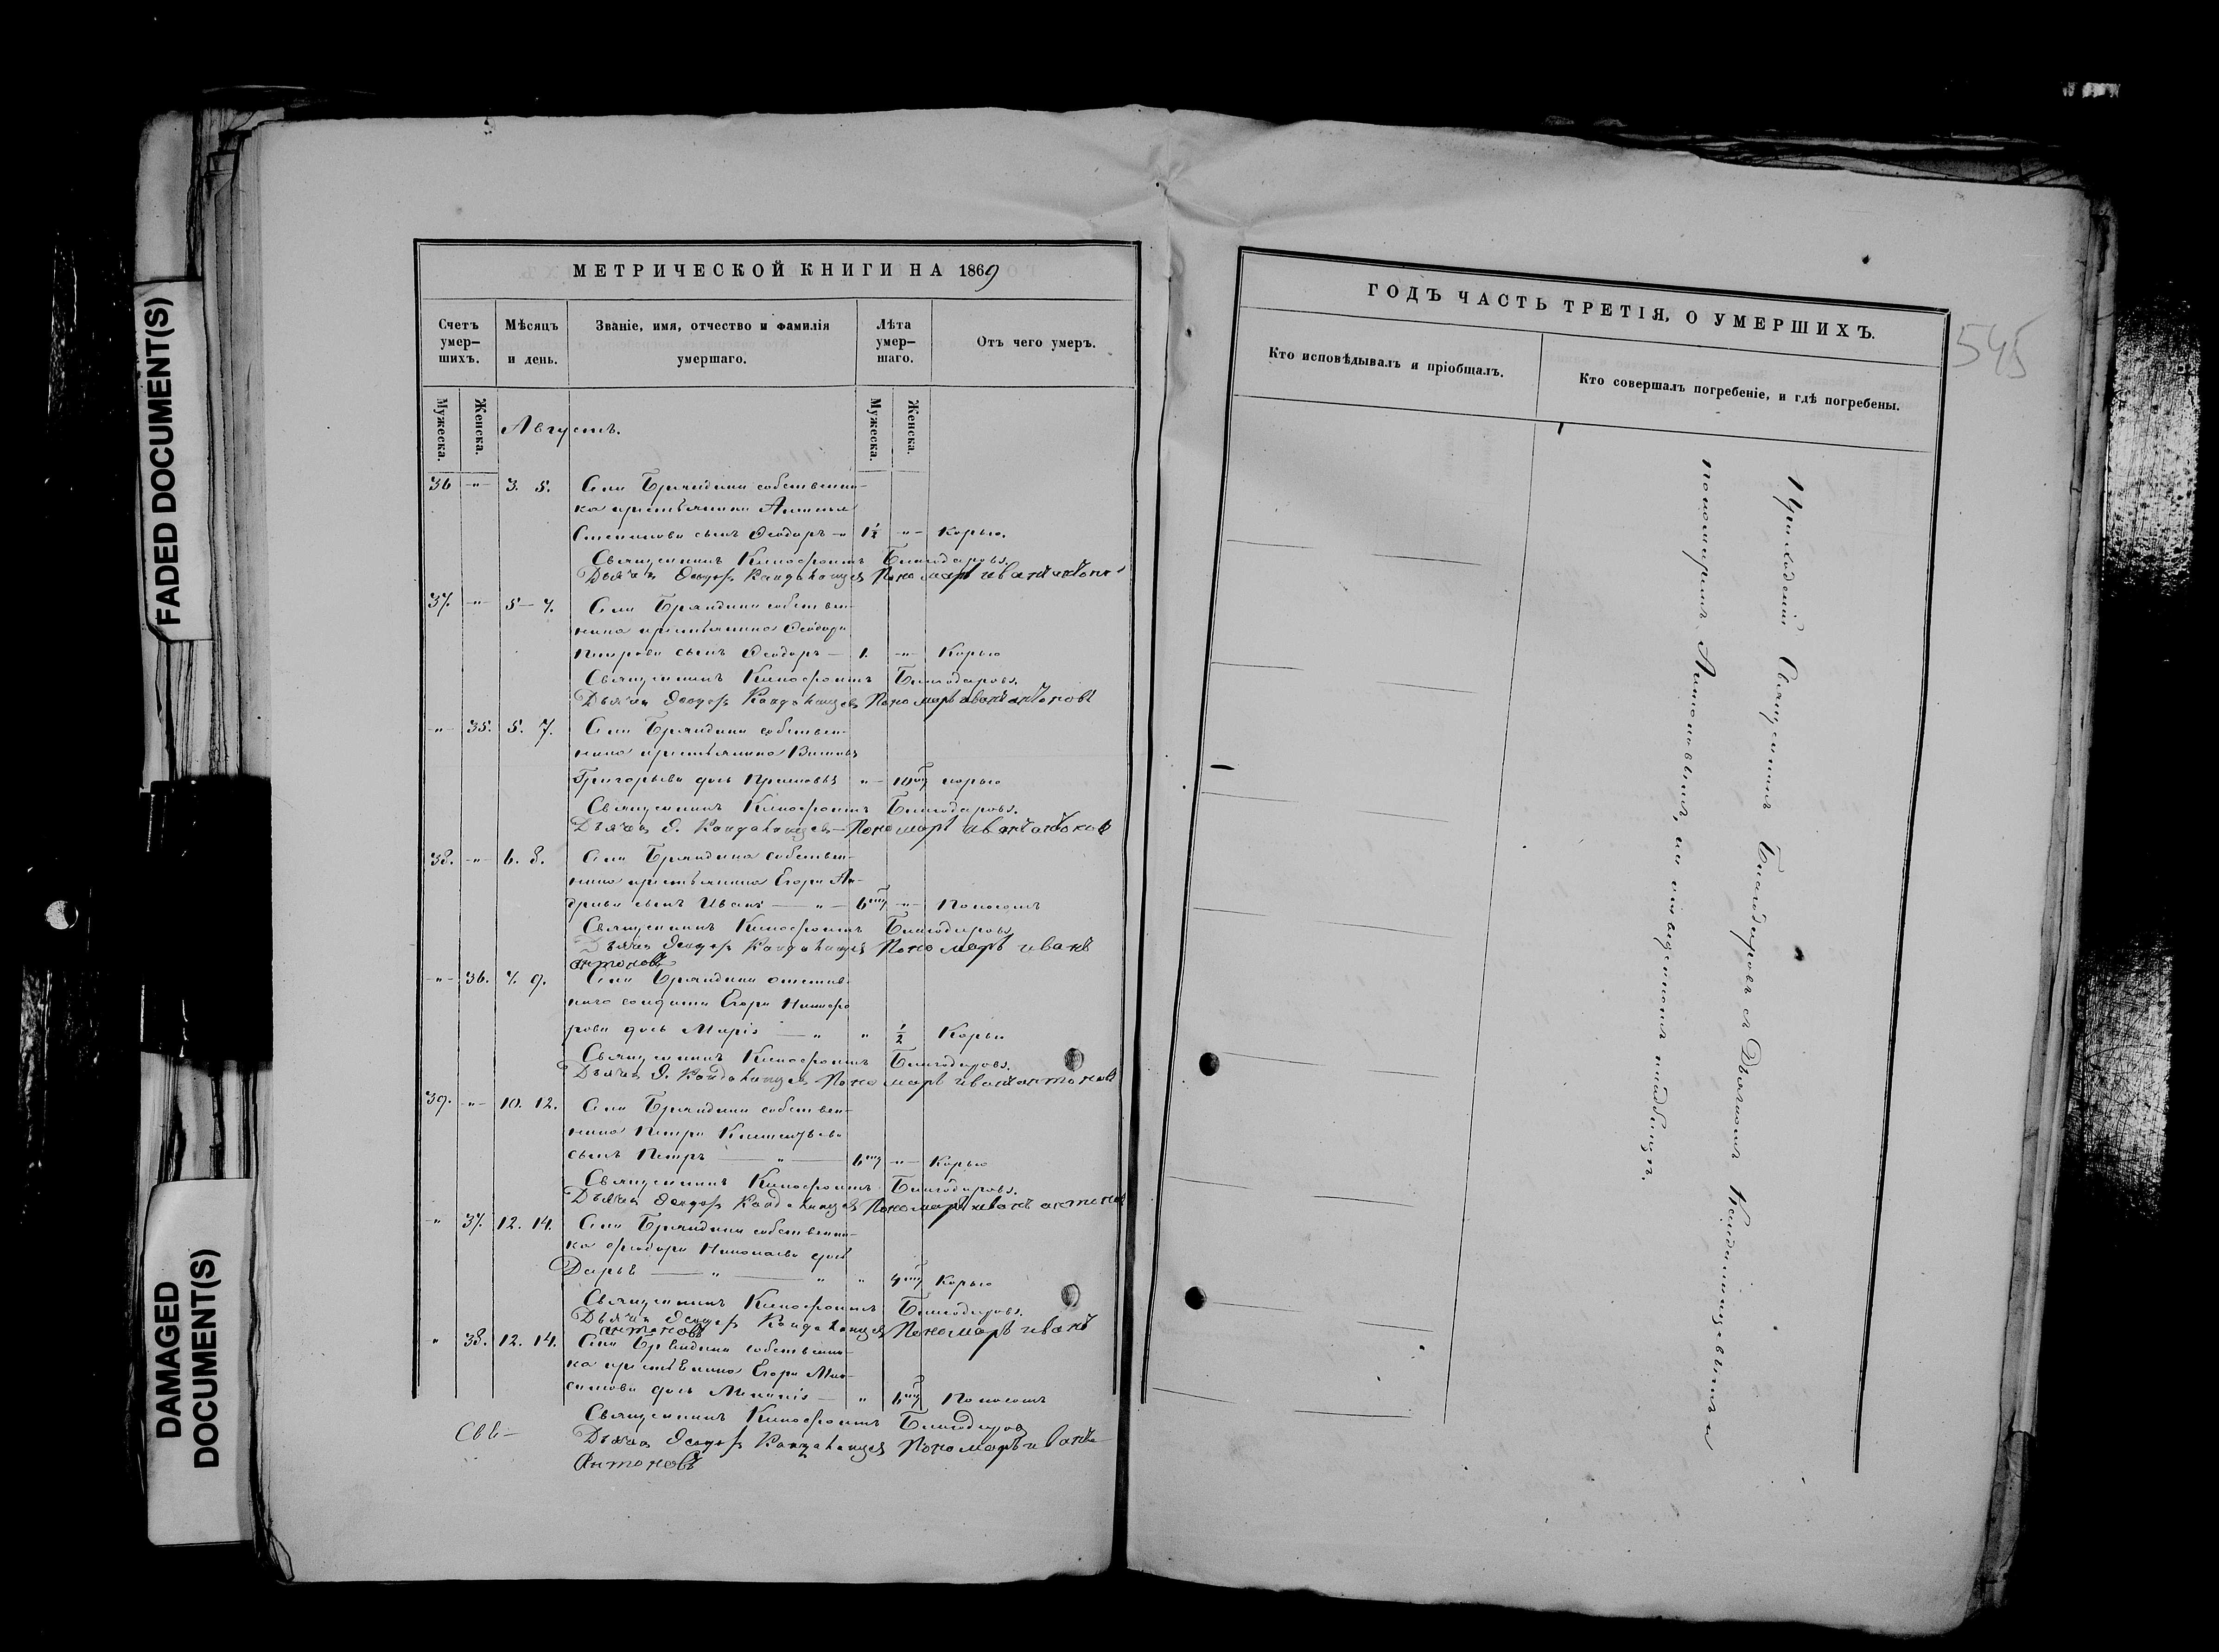 FADED DOCUMENT(S)
DAMAGED
DOCUMENT(S)
МЕТРИЧЕСКОЙ КНИГИ НА 1869
Счетъ умер-
шихъ.
Мѣсяцъ
и день.
Званіе, имя, отчество и фамилія
умершаго.
Лѣта
умер-
шаго.
Отъ чего умеръ.
Мужеска.
Женска.
Мужеска.
Женска.
Августъ.
36 -"- 3. 5. Села Бряндина собственни-
ка крестьянина
Степанова сынъ Ѳеодоръ -" 1½ -"- Корью.
Священникъ Ксенофонтъ Благодаровъ.
Дьячек Ѳеодор Кандаланцев Пономарь иванъ антонов
37. -"- 5-7. Села Бряндина собствен-
ника крестьянина Ѳеодора
Петрова сынъ Ѳеодоръ - 1. -"- Корью
Священникъ Ксенофонтъ Благодаровъ.
Дьячек Ѳеодор Кандаланцев Пономарь иванъ антоновъ
-"- 35. 5. 7. Села Бряндина собствен-
ника крестьянина
Григорьева дочь " 10 корью
Священникъ Ксенофонтъ Благодаровъ.
Дьячек Ѳ. Кандаланцев Пономарь иванъ антонов
38. -"- 6. 8. Села Бряндина собствен-
ника крестьянина Егора Ан-
дреева сынъ Иванъ — " — 6 -"- Поносомъ
Священникъ Ксенофонтъ Благодаровъ
Дьячек Ѳеодор Кандаланцев Пономарь иванъ
антоновъ
-"- 36. 7. 9. Села Бряндина отстав-
наго солдата Егора Никифо
рова дочь Марія — " " ½ Корью
Священникъ Ксенофонтъ Благодаровъ.
Дьячек Ѳ. Кандаланцев Пономарь иванъ антоновъ
39. -"- 10. 12. Села Бряндина собствен-
ника Петра
сынъ Петръ — " — 6 -"- Корью
Священникъ Ксенофонтъ Благодаровъ.
Дьячек Ѳеодор Кандаланцев Пономарь иванъ антонов
" 37. 12. 14. Села Бряндина собственни-
ка Ѳеодора Николаева дочь
Дарья — " — " " Корью
Священникъ Ксенофонтъ Благодаровъ.
Дьячек Ѳеодор Кандаланцев Пономарь иванъ
антоновъ
" 38. 12. 14. Села Бряндина собственни-
ка крестьянина Егора Мак-
симова дочь — " 6 Поносомъ
Священникъ Ксенофонтъ Благодаровъ
Дьячек Ѳеодор Кандаланцев Пономарь иванъ
Антоновъ
ГОДЪ ЧАСТЬ ТРЕТІЯ, О УМЕРШИХЪ.
545
Кто исповѣдывалъ и пріобщалъ.
Кто совершалъ погребеніе, и гдѣ погребены.
Приходскій Священникъ Благодаровъ съ Дьячкомъ Кандаланцевымъ и
пономаремъ Антоновымъ, на отведенномъ кладбищѣ.